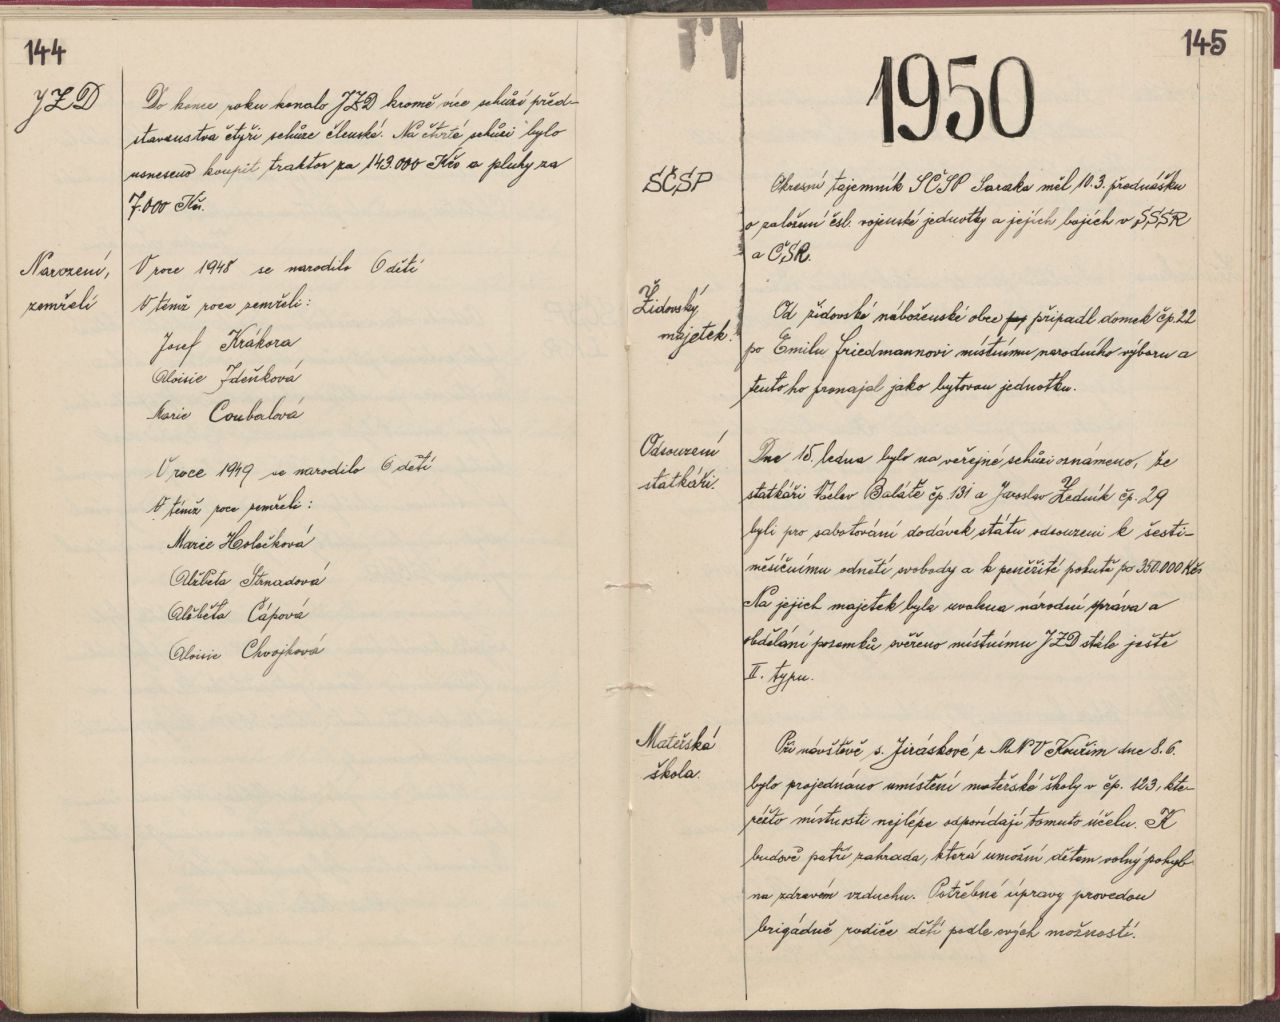 144
JZD
Do konce roku konalo JZD kromě více schůzí před-
stavenstva čtyři schůze členské. Na čtvrté schůzi bylo
usneseno koupit traktor za 143.000 Kčs a pluhy za
7.000 Kčs.
Narození,
zemřelí
V roce 1948 se narodilo 6 dětí
V témž roce zemřeli:
Josef Krákora
Aloisie Zdeňková
Marie Coubalová
V roce 1949 se narodilo 6 dětí
V témž roce zemřeli:
Marie Holečková
Alžběta Strnadová
Alžběta Čápová
Aloisie Chvojková
145
1950
SČSP
Okresní tajemník SČSP Saraka měl 10.3. přednášku
o založení čsl. vojenské jednotky a jejích bojích v SSSR
a ČSR.
Židovský
majetek.
Od židovské náboženské obce připadl domek čp.22
po Emilu Friedmannovi místnímu národního výboru a
tento ho pronajal jako bytovou jednotku.
Odsouzení
statkáři.
Dne 15. ledna bylo na veřejné schůzi oznámeno, že
statkáři Václav Baláte čp. 131 a Jaroslav Zedník čp. 29
byli pro sabotování dodávek státu odsouzeni k šesti-
měsíčnímu odnětí svobody a k peněžité pokutě po 350.000 Kčs
Na jejich majetek byla uvalena národní správa a
obdělání pozemků svěřeno místnímu JZD stále ještě
II. typu.
Mateřská
škola.
Při návštěvě s. Jiráskové z MNV Kouřim dne 8.6.
bylo projednáno umístění mateřské školy v čp. 123, kte-
réžto místnosti nejlépe odpovídají tomuto účelu. K
budově patří zahrada, která umožní dětem volný pohyb
na zdravém vzduchu. Potřebné úpravy provedou
brigádně rodiče dětí podle svých možností.